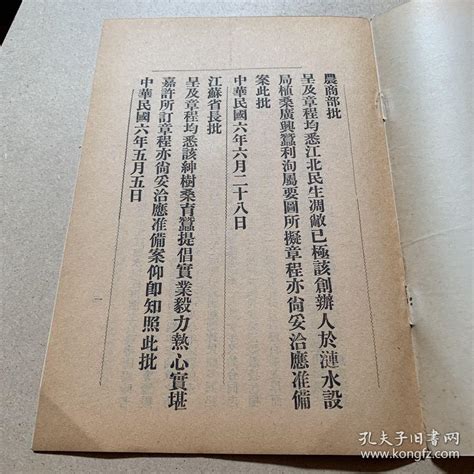 農商部批
呈及章程均悉江北民生凋敝已極該創辦人於漣水設
局植桑廣興蠶利洵屬要圖所擬章程亦尚妥洽應准備
案此批
中華民國六年六月二十八日
江蘇省長批
呈及章程均悉該紳樹桑育蠶提倡實業毅力熱心實堪
嘉許所訂章程亦尙妥洽應准備案仰卽知照此批
中華民國六年五月五日
一
孔夫子旧书网
www.kongfz.com